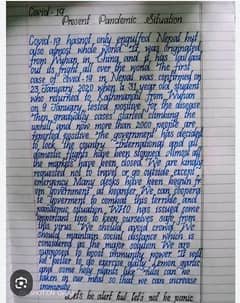 Covid-19
Present Pandemic Situation
Covid-19 has not only engulfed Nepal but
also almost whole world. It was originated
from Wuhan, in China, and it has spread
out its fright all over the world. The first
case of covid-19 in Nepal was confirmed on
23 January 2020 when a 31 year old student
who returned to Kathmandu from Wuhan
on 9 January, tested positive for the disease
Then gradually cases started climbing the
uphill and now more than 2000 people are
reported positive. The government has decided
to lock the country. International and all
domestic flights have been stopped. Almost all
the markets have been closed. We are kindly
requested not to travel or go outside except
emergency. Many desks have been
government as helper. We can cooperate
to government to combat this terrible and
pandemic situation. WHO has issued some
important tips to keep ourselves safe from
this virus. We should avoid crowd. We
should maintain social distance which is
considered as the major solution. We are
suggested to boost immunity power. It will
be better to do exercise daily. Lemon, garlic
and some holy herbs like can be
taken in our meal so that we can increase
immunity.
Let's be alert but let's not be panic.